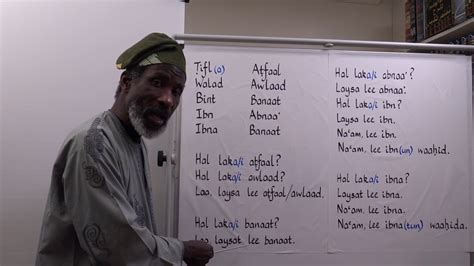 Ṭifl(a) Aṭfaal
Walad Awlaad
Bint Banaat
Ibn Abnaa'
Ibna Banaat
Hal laka/i aṭfaal?
Hal laka/i awlaad?
Laa, laysa lee aṭfaal/awlaad.
Hal laka/i banaat?
Laa, laysat lee banaat.
Hal laka/i abnaa'?
Laysa lee abnaa'.
Hal laka/i ibn?
Laysa lee ibn.
Na'am, lee ibn.
Na'am, lee ibn(un) waaḥid.
Hal laka/i ibna?
Laysat lee ibna.
Na'am, lee ibna.
Na'am, lee ibna(tun) waaḥida.